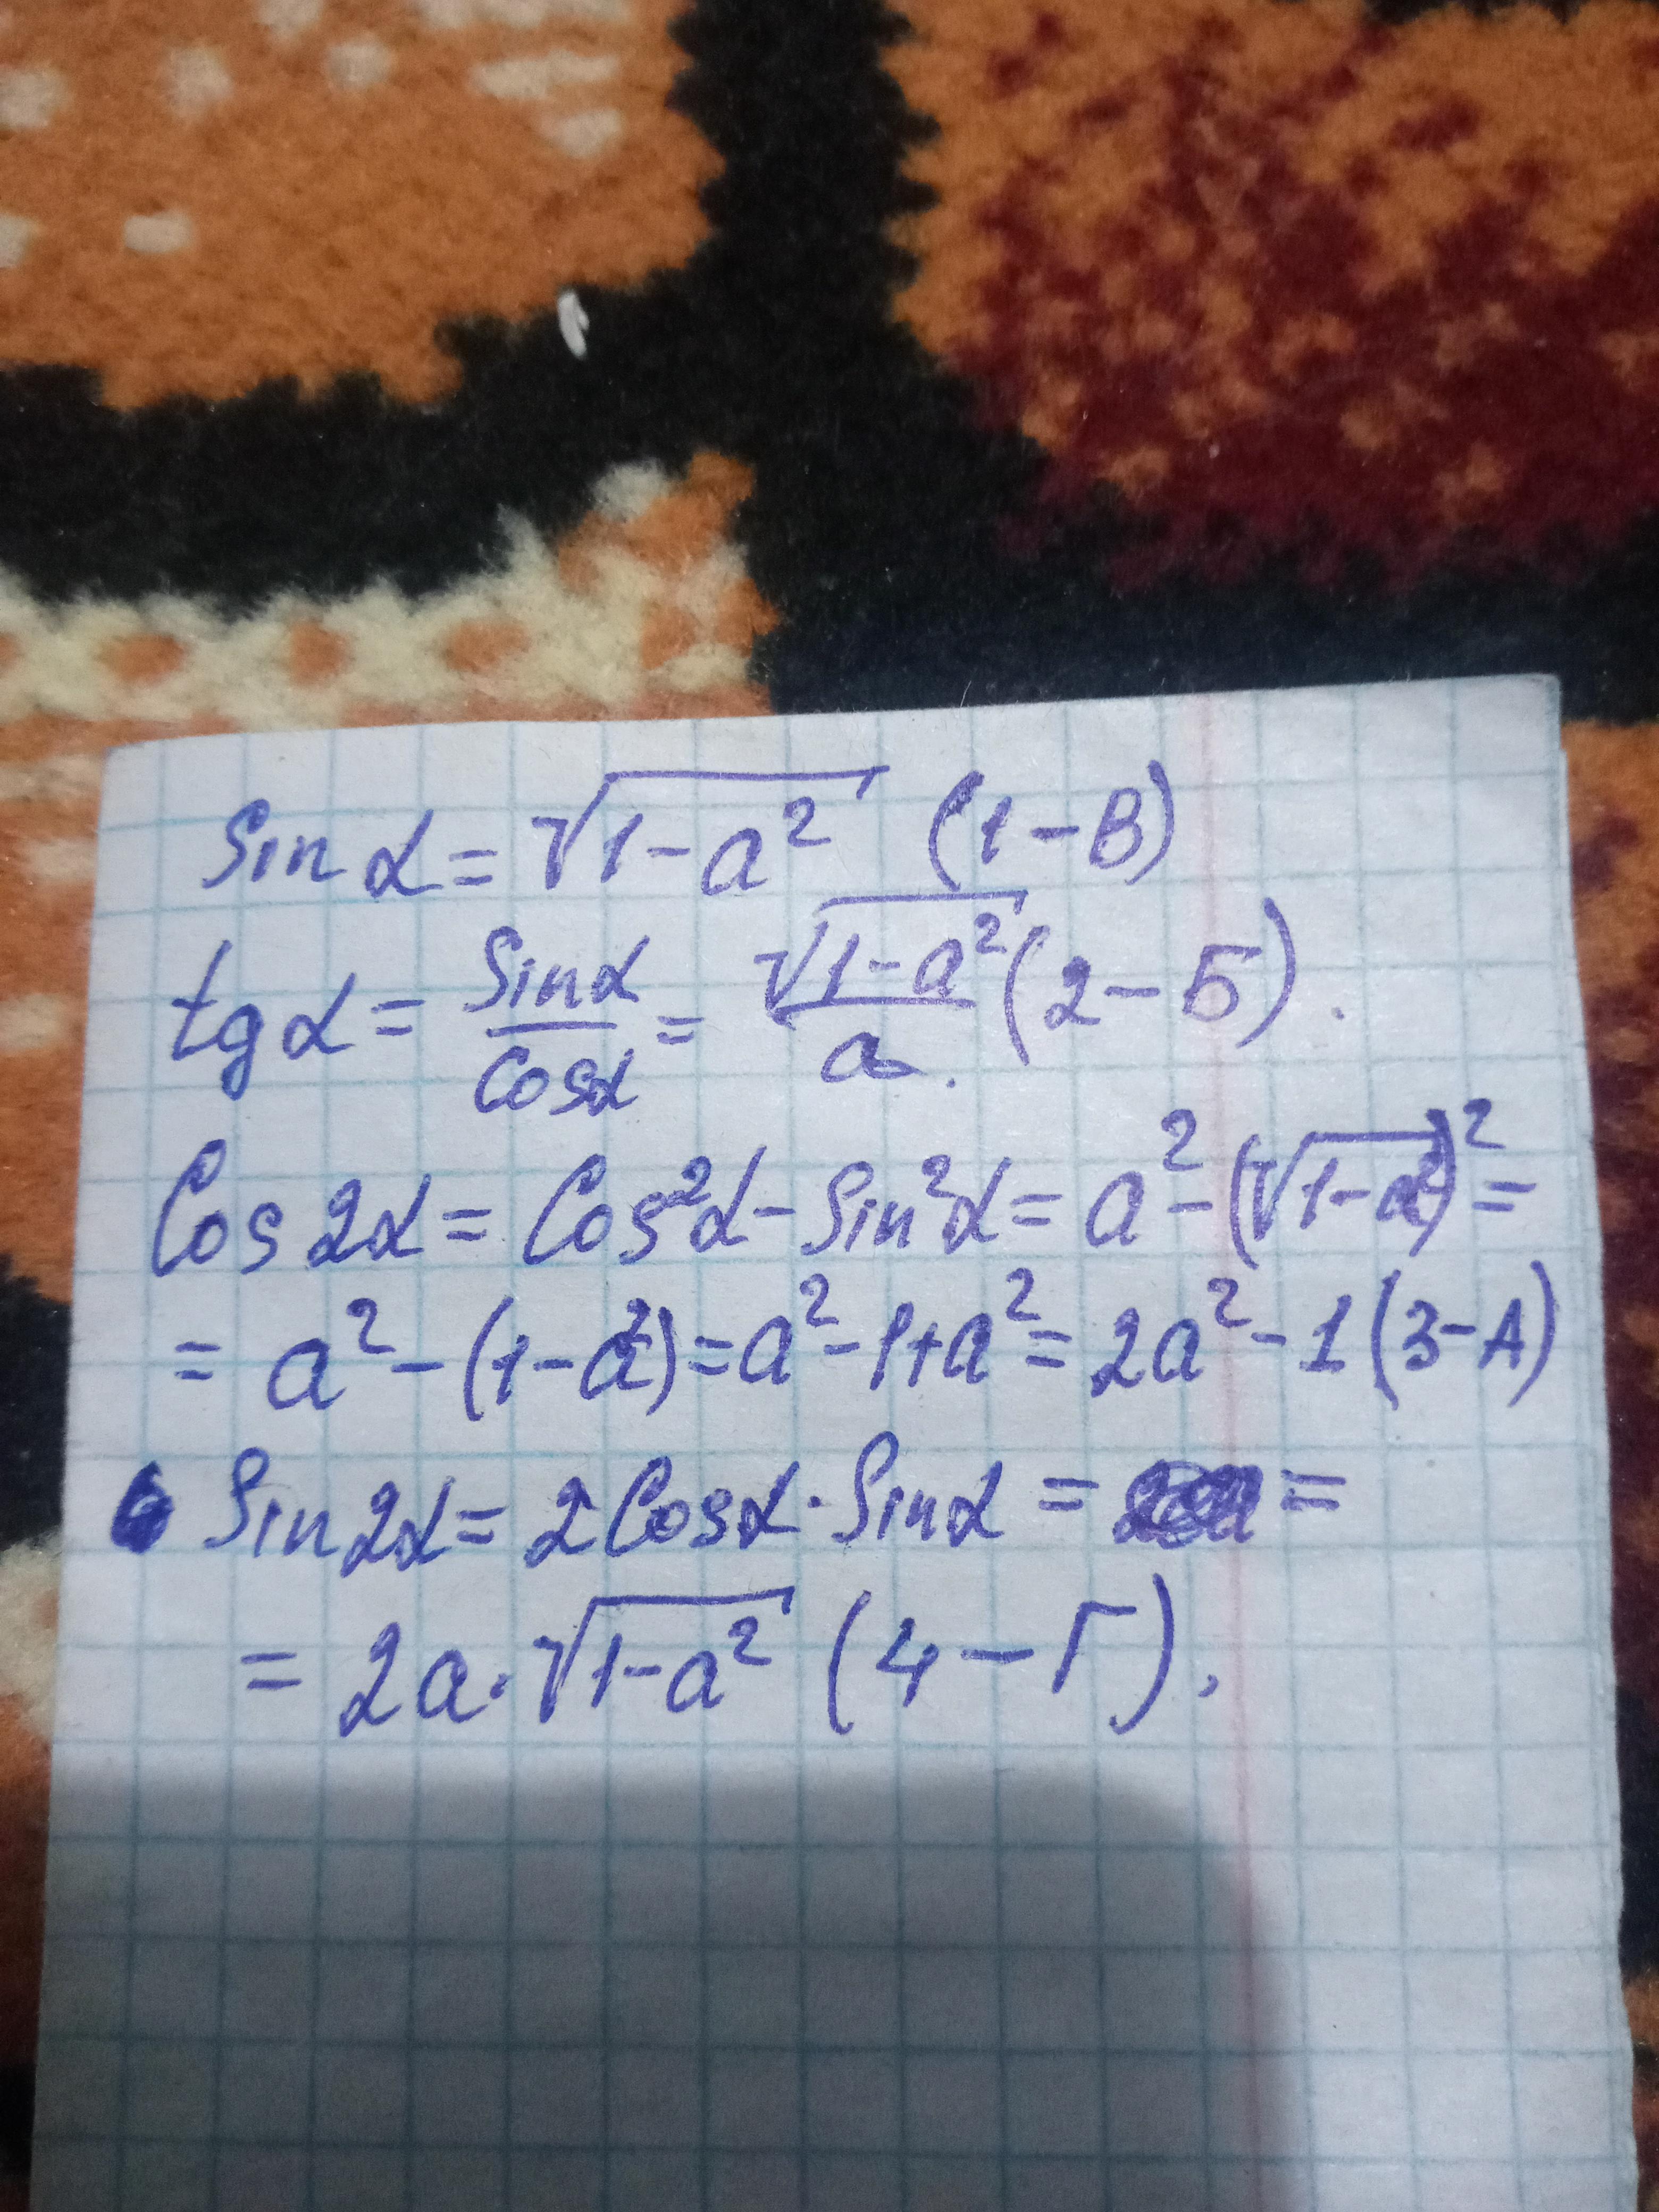 Sin α = √1-a² (1-В)
tg α = Sinα/Cosα = √1-a²/a. (2-Б).
Cos 2α = Cos²α - Sin²α = a² - (√1-a²)² =
= a² - (1-a²) = a² - 1 + a² = 2a² - 1 (3-А)
Sin 2α = 2 Cosα · Sinα = =
= 2a · √1-a² (4-Г).